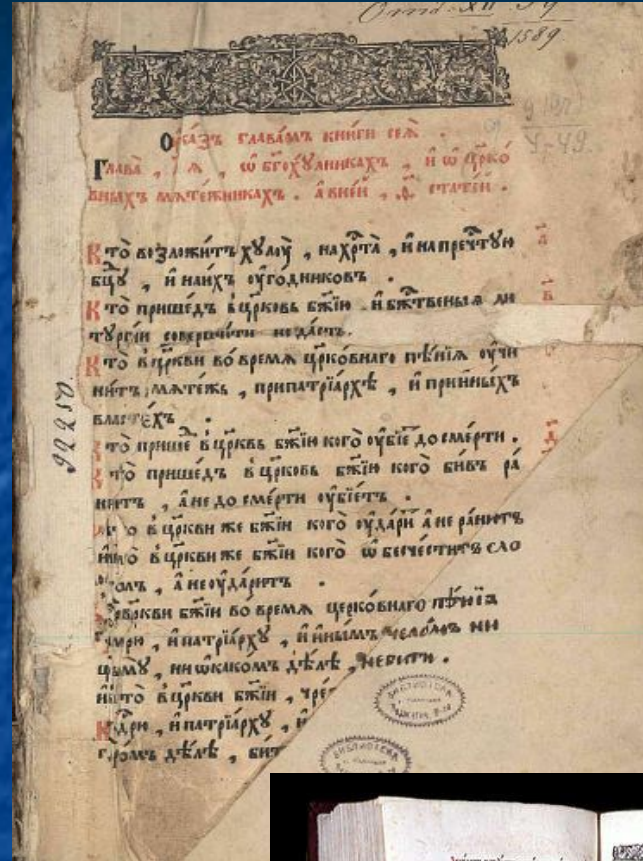 1589
ѹка́зъ глава́мъ кни́ги сеѧ̀ .
Глава̀ , а҃ , ѿ бг҃охꙋ́лникахъ , и҆ ѿ цр҃ко́
вныхъ мѧте́жникахъ . а҆ вне́и , ѳ҃ , стате́й .
Кто̀ возложи́тъ хꙋлꙋ̀ , на хр҃та̀ , и҆ на преч҃тꙋю
бц҃ꙋ , и҆ на и́хъ ѹ҆го́дниковъ .
Кто̀ прише́дъ в цр҃ковь бж҃їю и҆ бж҃твеныѧ ли
тꙋргїи соверши́ти не да́стъ .
Кто̀ в цр҃кви во́ времѧ цр҃ко́внагѡ пѣ́нїѧ ѹ҆чи
ни́тъ мѧте́жъ , при патрїа́рхѣ , и҆ при и́ныхъ
власте́хъ .
Кто̀ прише в цр҃квь бж҃їю кого̀ ѹ҆бїе́ до сме́рти .
Кто̀ прише́дъ в цр҃ковь бж҃їю кого̀ би́въ ра́
нитъ , а҆ не до сме́рти ѹ҆бїе́тъ .
в цр҃кви же бж҃їи кого̀ ѹ҆да́ри а҆ не ра́нитъ
в цр҃кви же бж҃їи кого̀ ѡ҆бесче́ститъ сло
а҆ не ѹ҆да́ритъ .
бж҃їи во́ времѧ церко́внаго пѣ́нїѧ
и҆ патрїа́рхꙋ , и҆ и́нымъ ни
ни ѡ҆ како́мъ дѣ́лѣ , не би́ти .
в цр҃кви бж҃їи ,
и҆ патрїа́рхꙋ , и҆
дѣ́лѣ ,
92250
БИБЛИОТЕКА
БИБЛИОТЕКА